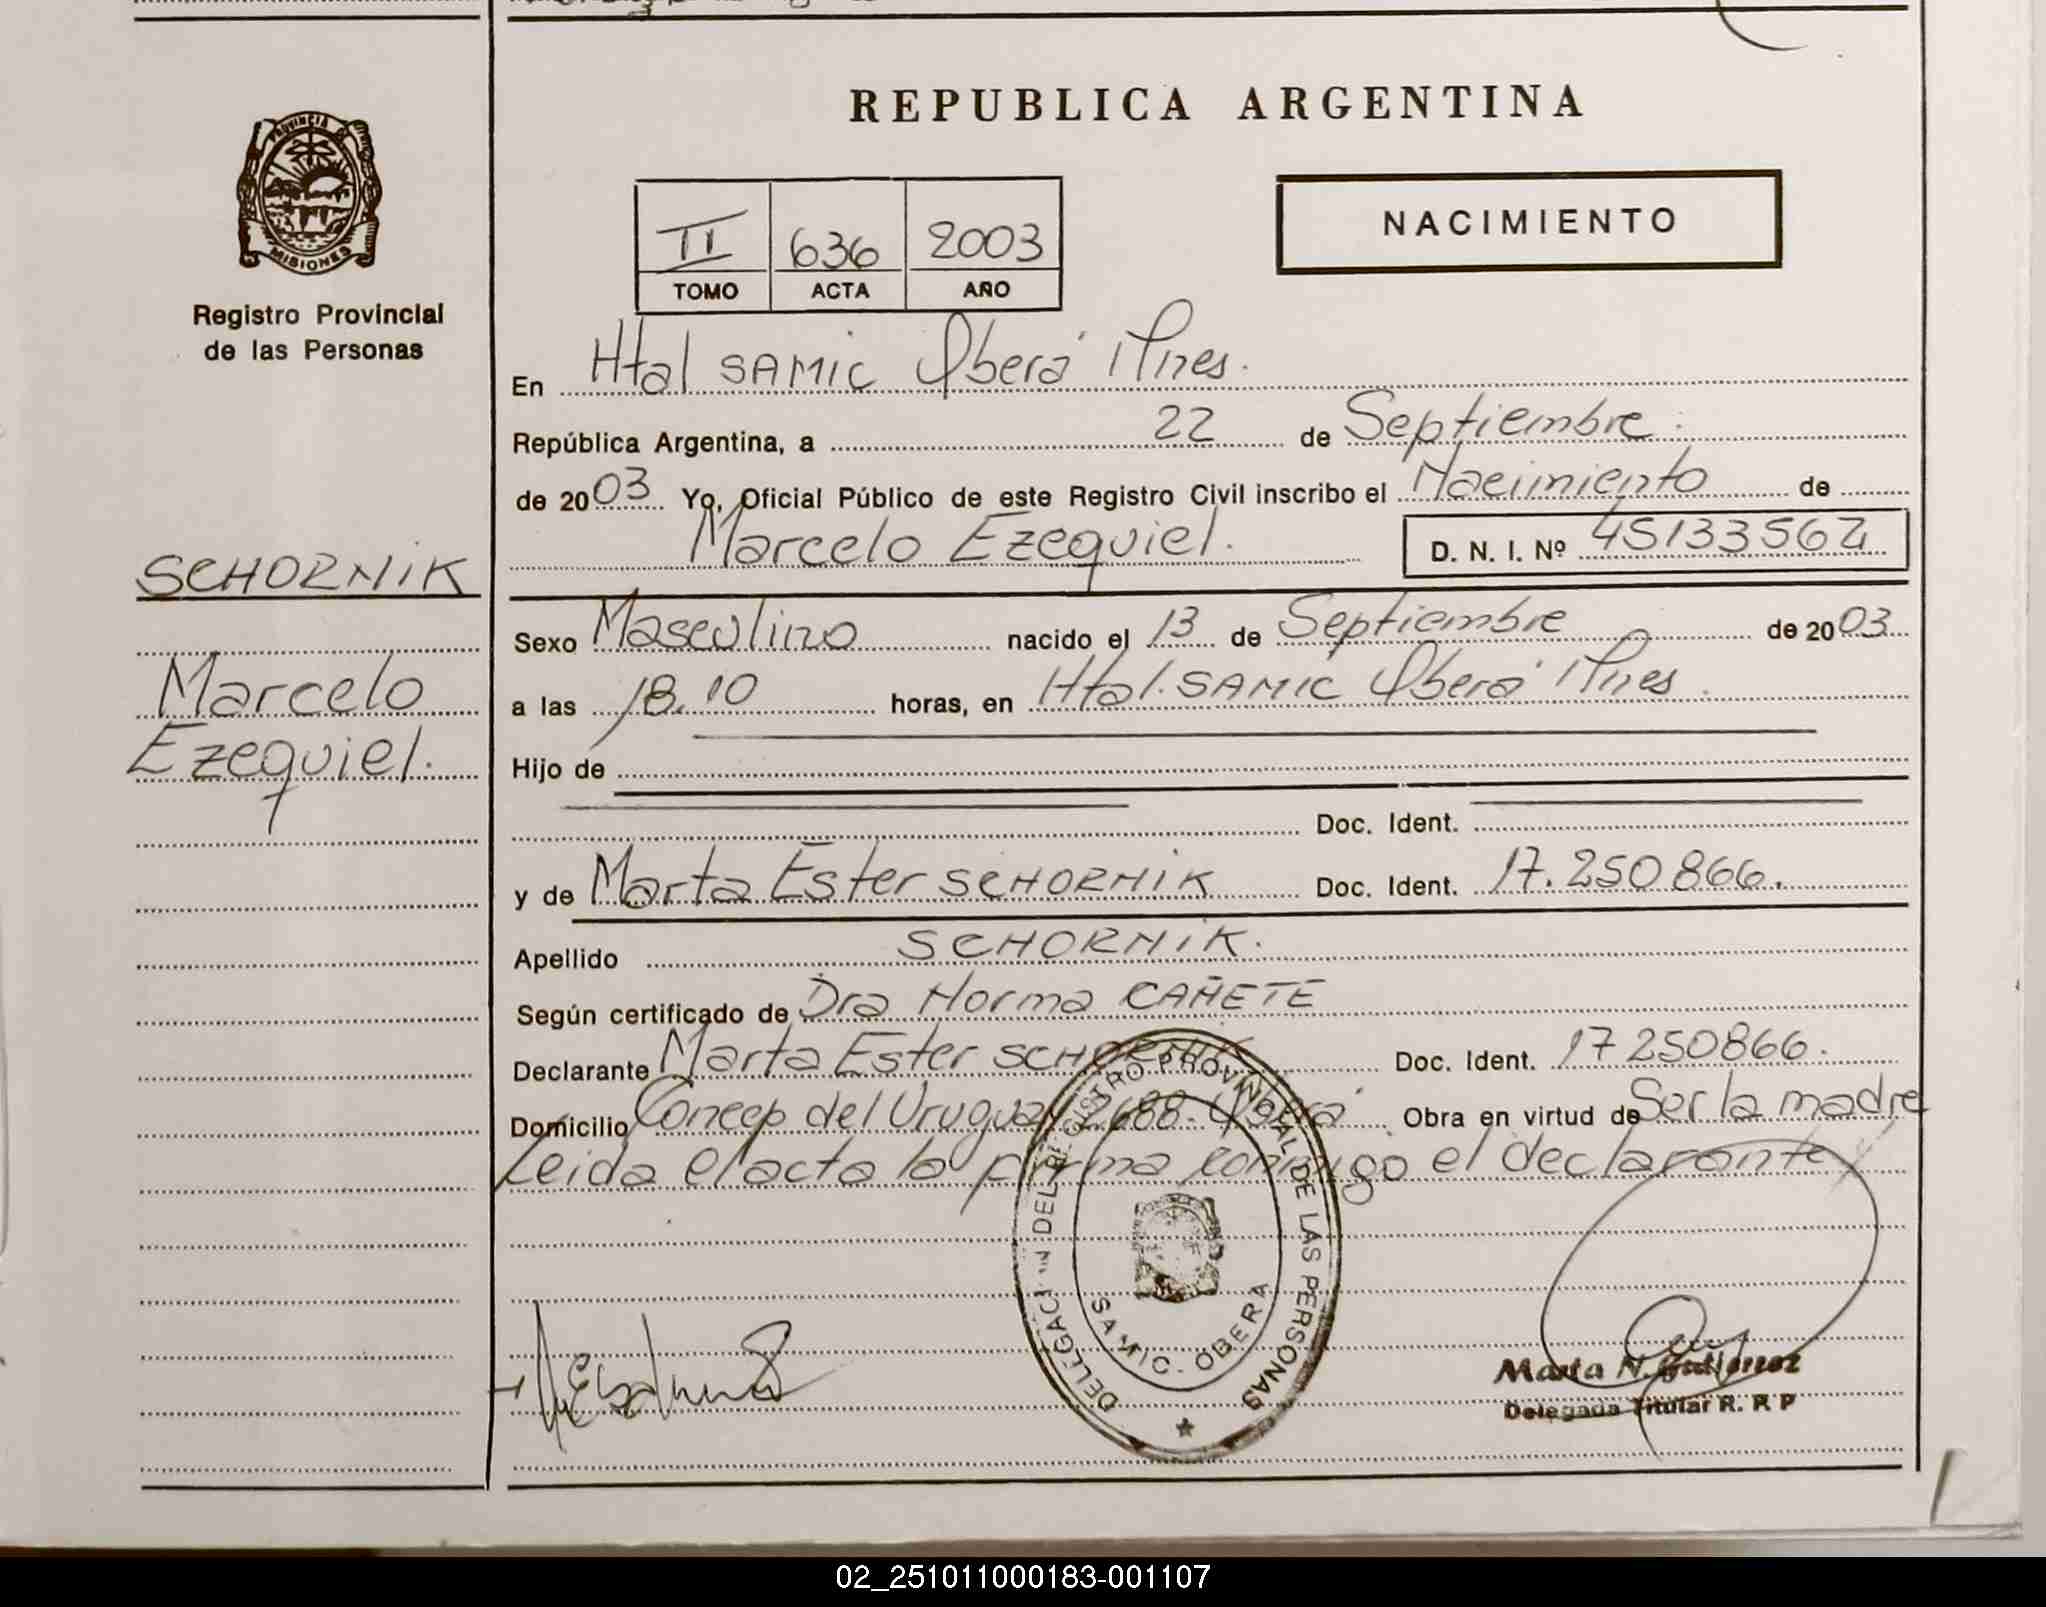 REPUBLICA ARGENTINA
PROVINCIA DE
MISIONES
Registro Provincial
de las Personas
NACIMIENTO
II 636 2003
TOMO ACTA AÑO
En Htal SAMIC Oberá Mnes.
República Argentina, a 22 de Septiembre
de 2003 Yo, Oficial Público de este Registro Civil inscribo el Nacimiento de
Marcelo Ezequiel. D. N. I. Nº 45133562
SCHORNIK
Marcelo
Ezequiel.
Sexo Masculino nacido el 13 de Septiembre de 2003
a las 18.10 horas, en Htal. SAMIC Oberá Mnes.
Hijo de
Doc. Ident.
y de Marta Ester SCHORNIK Doc. Ident. 17.250866.
Apellido SCHORNIK.
Según certificado de Dra Norma CAÑETE
Declarante Marta Ester SCHORNIK Doc. Ident. 17250866.
Domicilio Concep del Uruguay 2688. Oberá Obra en virtud de Ser la madre
Leida el acta la firma conmigo el declarante
DELEGACION DEL REGISTRO PROVINCIAL DE LAS PERSONAS
SAMIC. OBERA
Marta N. Gutierrez
Delegada Titular R. P. P
02_251011000183-001107